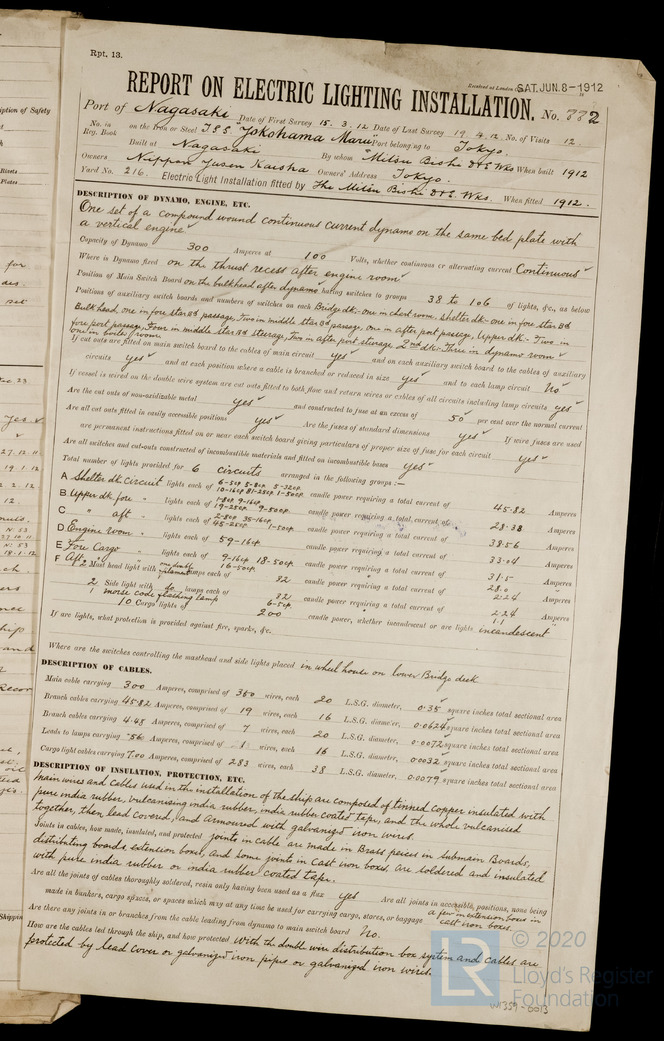 Rpt. 13.
Received at London Office SAT. JUN. 8 - 1912
REPORT ON ELECTRIC LIGHTING INSTALLATION. No. 882
Port of Nagasaki Date of First Survey 15. 3. 12 Date of Last Survey 19. 4. 12 No. of Visits 12.
No. in Reg. Book on the Iron or Steel T.S.S "Yokohama Maru" Port belonging to Tokyo.
Built at Nagasaki By whom Mitsu Bishi D&E Wks When built 1912
Owners Nippon Yusen Kaisha Owners' Address Tokyo.
Yard No. 216. Electric Light Installation fitted by The Mitsu Bishi D&E. Wks. When fitted 1912.
DESCRIPTION OF DYNAMO, ENGINE, ETC.
One set of a compound wound continuous current dynamo on the same bed plate with
a vertical engine
Capacity of Dynamo 300 Amperes at 100 Volts, whether continuous or alternating current Continuous
Where is Dynamo fixed on the thrust recess after engine room
Position of Main Switch Board on the bulkhead after dynamo having switches to groups 38 to 106 of lights, &c., as below
Positions of auxiliary switch boards and numbers of switches on each Bridge dk - one in chart room - shelter dk - one in fore starbd
Bulkhead, one in fore starbd passage, Two in middle starbd passage, one in after port passage, Upper dk - Two in
fore port passage, Four in middle starbd sterage, Two in after port sterage, 2nd dk - Three in dynamo room
one in boiler room.
If cut outs are fitted on main switch board to the cables of main circuit yes and on each auxiliary switch board to the cables of auxiliary
circuits yes and at each position where a cable is branched or reduced in size yes and to each lamp circuit No
If vessel is wired on the double wire system are cut outs fitted to both flow and return wires or cables of all circuits including lamp circuits yes
Are the cut outs of non-oxidizable metal yes and constructed to fuse at an excess of 50 per cent over the normal current
Are all cut outs fitted in easily accessible positions yes Are the fuses of standard dimensions yes If wire fuses are used
are permanent instructions fitted on or near each switch board giving particulars of proper size of fuse for each circuit yes
Are all switches and cut-outs constructed of incombustible materials and fitted on incombustible bases yes
Total number of lights provided for 6 circuits arranged in the following groups :-
A Shelter dk Circuit lights each of 6-5cp 5-8cp 5-32cp 10-16cp 81-25cp 1-50cp candle power requiring a total current of 45.82 Amperes
B Upper dk fore " lights each of 1-8cp 9-16cp 19-25cp 9-50cp candle power requiring a total current of 28.38 Amperes
C " aft " lights each of 2-8cp 35-16cp 45-25cp 1-50cp candle power requiring a total current of 38.56 Amperes
D Engine room " lights each of 59-16cp candle power requiring a total current of 33.04 Amperes
E Fore Cargo " lights each of 9-16cp 18-50cp candle power requiring a total current of 31.5 Amperes
F Aft " 16-50cp 28.0
2 Mast head light with lamps each of 32 candle power requiring a total current of 2.24 Amperes
2 Side light with do lamps each of 32 candle power requiring a total current of 2.24 Amperes
1 morse code flashing lamp 6-5cp 1.1
10 Cargo lights of 200 candle power, whether incandescent or arc lights incandescent
If arc lights, what protection is provided against fire, sparks, &c.
Where are the switches controlling the masthead and side lights placed in wheel house on lower Bridge deck
DESCRIPTION OF CABLES.
Main cable carrying 300 Amperes, comprised of 360 wires, each 20 L.S.G. diameter, 0.35 square inches total sectional area
Branch cables carrying 45.82 Amperes, comprised of 19 wires, each 16 L.S.G. diameter, 0.0624 square inches total sectional area
Branch cables carrying 4.48 Amperes, comprised of 7 wires, each 20 L.S.G. diameter, 0.0072 square inches total sectional area
Leads to lamps carrying .56 Amperes, comprised of 1 wires, each 16 L.S.G. diameter, 0.0032 square inches total sectional area
Cargo light cables carrying 7.00 Amperes, comprised of 283 wires, each 38 L.S.G. diameter, 0.0079 square inches total sectional area
DESCRIPTION OF INSULATION, PROTECTION, ETC.
Main wires and cables used in the installation of the ship are composed of tinned copper insulated with
pure india rubber, vulcanising india rubber, india rubber coated tape, and the whole vulcanised
together, then lead covered, and armoured with galvanized iron wires.
Joints in cables, how made, insulated, and protected joints in cable are made in Brass peices in submain Boards,
distributing boards, extention boxes, and some joints in cast iron boxes, are soldered and insulated
with pure india rubber or india rubber coated tape.
Are all the joints of cables thoroughly soldered, resin only having been used as a flux yes Are all joints in accessible positions, none being
made in bunkers, cargo spaces, or spaces which may at any time be used for carrying cargo, stores, or baggage a few in extension boxes in cast iron boxes.
Are there any joints in or branches from the cable leading from dynamo to main switch board No.
How are the cables led through the ship, and how protected with the double wire distribution box system and cables are
protected by lead cover or galvanized iron pipes or galvanized iron wires.
© 2020
Lloyd's Register
Foundation
LR
W1359-0013